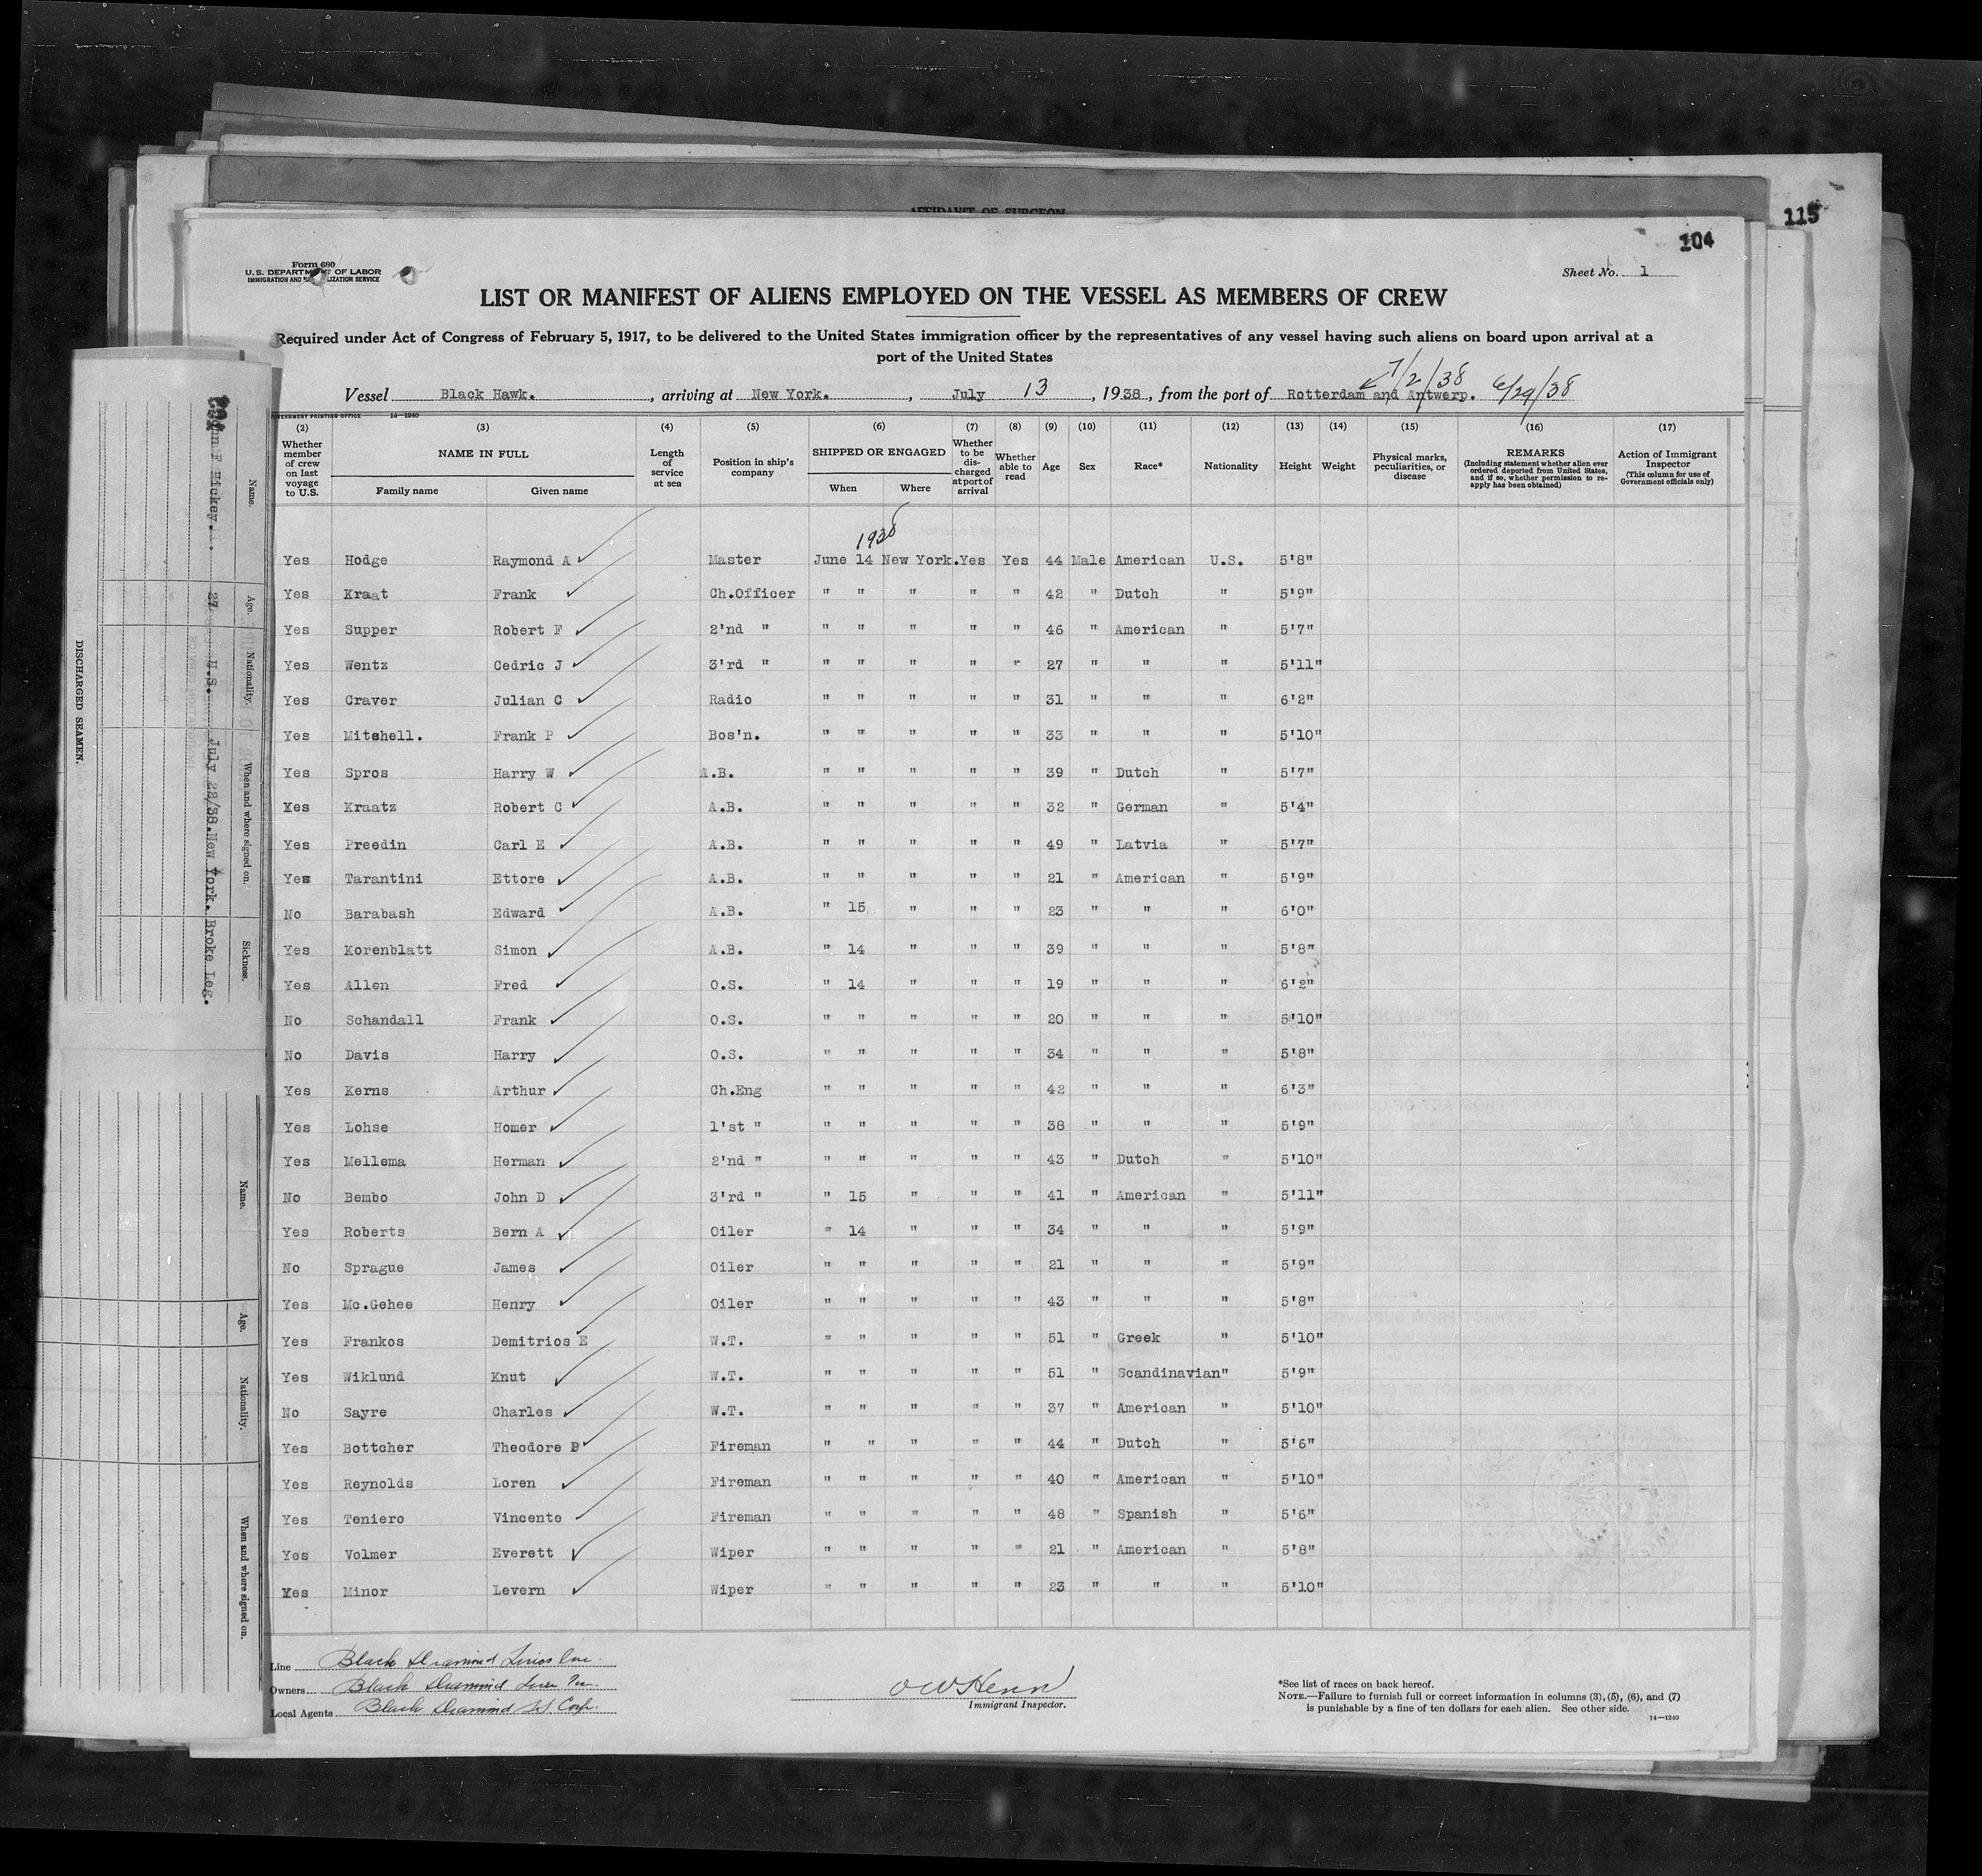 AFFIDAVIT OF SURGEON
115
104
Form 680
U. S. DEPARTMENT OF LABOR
IMMIGRATION AND NATURALIZATION SERVICE
Sheet No. 1
LIST OR MANIFEST OF ALIENS EMPLOYED ON THE VESSEL AS MEMBERS OF CREW
Required under Act of Congress of February 5, 1917, to be delivered to the United States immigration officer by the representatives of any vessel having such aliens on board upon arrival at a
port of the United States
7/2/38
Vessel Black Hawk. , arriving at New York. , July 13 , 1938 , from the port of Rotterdam and Antwerp. 6/29/38
GOVERNMENT PRINTING OFFICE 14—1240
(2) (3) (4) (5) (6) (7) (8) (9) (10) (11) (12) (13) (14) (15) (16) (17)
Whether member of crew on last voyage to U.S.
NAME IN FULL
Family name Given name
Length of service at sea
Position in ship's company
SHIPPED OR ENGAGED
When Where
Whether to be discharged at port of arrival
Whether able to read
Age
Sex
Race*
Nationality
Height
Weight
Physical marks, peculiarities, or disease
REMARKS
(Including statement whether alien ever ordered deported from United States, and if so, whether permission to re-apply has been obtained)
Action of Immigrant Inspector
(This column for use of Government officials only)
1938
Yes Hodge Raymond A Master June 14 New York. Yes Yes 44 Male American U.S. 5'8"
Yes Kraat Frank Ch.Officer " " " " " 42 " Dutch " 5'9"
Yes Supper Robert F 2'nd " " " " " " 46 " American " 5'7"
Yes Wentz Cedric J 3'rd " " " " " " 27 " " " 5'11"
Yes Craver Julian C Radio " " " " " 31 " " " 6'2"
Yes Mitchell. Frank P Bos'n. " " " " " 33 " " " 5'10"
Yes Spros Harry W A.B. " " " " " 39 " Dutch " 5'7"
Yes Kraatz Robert C A.B. " " " " " 32 " German " 5'4"
Yes Preedin Carl E A.B. " " " " " 49 " Latvia " 5'7"
Yes Tarantini Ettore A.B. " " " " " 21 " American " 5'9"
No Barabash Edward A.B. " 15 " " " 23 " " " 6'0"
Yes Korenblatt Simon A.B. " 14 " " " 39 " " " 5'8"
Yes Allen Fred O.S. " 14 " " " 19 " " " 6'2"
No Schandall Frank O.S. " " " " " 20 " " " 5'10"
No Davis Harry O.S. " " " " " 34 " " " 5'8"
Yes Kerns Arthur Ch.Eng " " " " " 42 " " " 6'3"
Yes Lohse Homer 1'st " " " " " " 38 " " " 5'9"
Yes Mellema Herman 2'nd " " " " " " 43 " Dutch " 5'10"
No Bembo John D 3'rd " " 15 " " " 41 " American " 5'11"
Yes Roberts Bern A Oiler " 14 " " " 34 " " " 5'9"
No Sprague James Oiler " " " " " 21 " " " 5'9"
Yes Mc.Gehee Henry Oiler " " " " " 43 " " " 5'8"
Yes Frankos Demitrios E W.T. " " " " " 51 " Greek " 5'10"
Yes Wiklund Knut W.T. " " " " " 51 " Scandinavian " 5'9"
No Sayre Charles W.T. " " " " " 37 " American " 5'10"
Yes Bottcher Theodore B Fireman " " " " " 44 " Dutch " 5'6"
Yes Reynolds Loren Fireman " " " " " 40 " American " 5'10"
Yes Teniero Vincente Fireman " " " " " 48 " Spanish " 5'6"
Yes Volmer Everett Wiper " " " " " 21 " American " 5'8"
Yes Minor Levern Wiper " " " " " 23 " " " 5'10"
Line Black Diamond Lines Inc.
Owners Black Diamond Lines Inc.
Local Agents Black Diamond SS Corp.
O W Henn
Immigrant Inspector.
*See list of races on back hereof.
NOTE.—Failure to furnish full or correct information in columns (3), (5), (6), and (7)
is punishable by a fine of ten dollars for each alien. See other side.
14—1240
DISCHARGED SEAMEN.
Name. Age. Nationality. When and where signed on. Sickness.
John F Hickey. 27 U.S. July 22/38. New York. Broke Leg.
Name. Age. Nationality. When and where signed on.